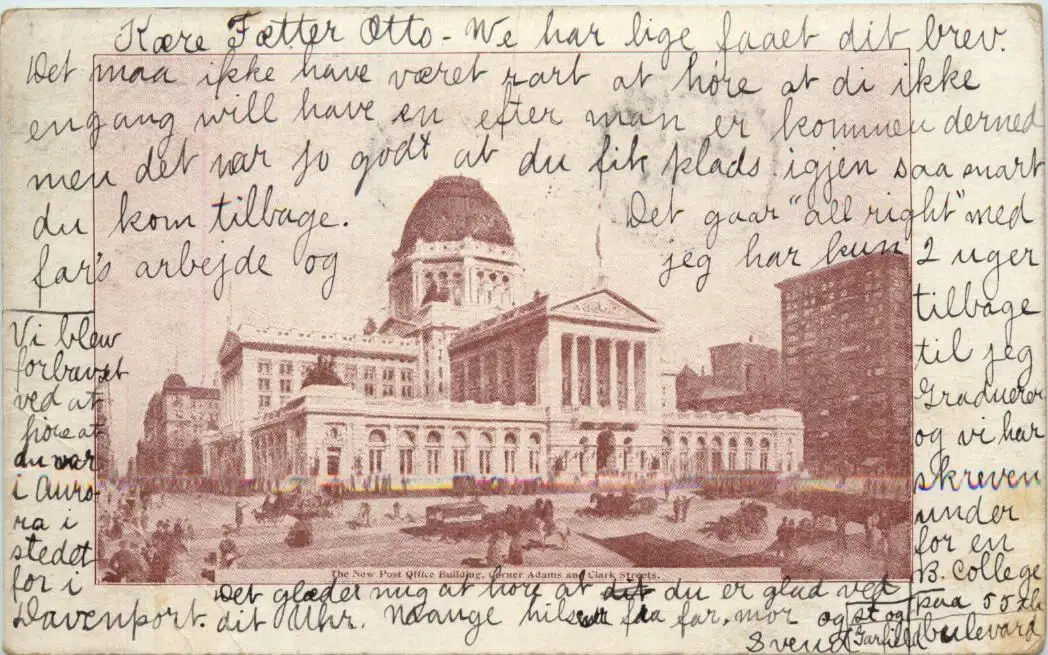 Kære Fætter Otto - We har lige faaet dit brev.
Det maa ikke have været rart at høre at di ikke
engang will have en efter man er kommen derned
men det var jo godt at du fik plads igjen saa snart
du kom tilbage. Det gaar "all right" med
far's arbejde og jeg har kun 2 uger
tilbage
til jeg
Graduerer
og vi har
skreven
under
for en
B. College
paa 55 de
st og
Garfield
bulevard
Vi blew
forbavset
ved at
høre at
du war
i Auro-
ra i
stedet
for i
Davenport.
The New Post Office Building, Corner Adams and Clark Streets.
Det glæder mig at høre at dit du er glad ved
dit Uhr. Mange hilsener fra far, mor og
Svend